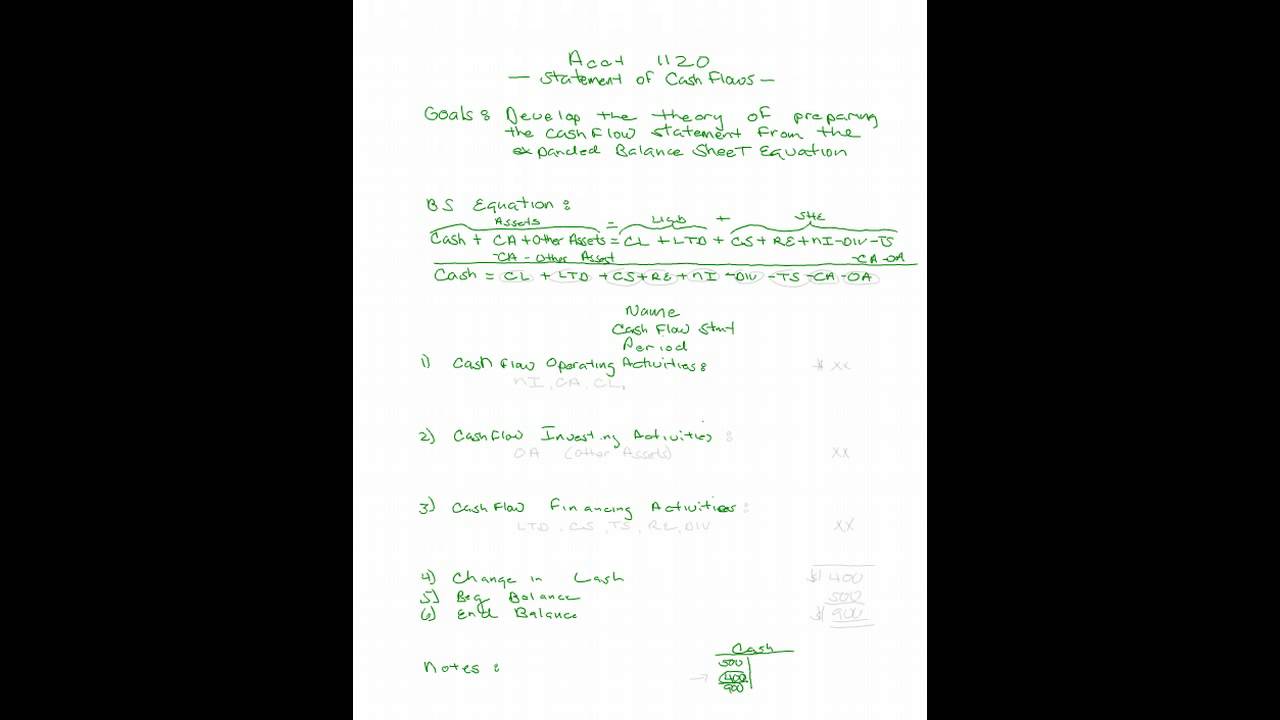 Acct 1120
— Statement of Cash Flows —
Goals: Develop the theory of preparing
the Cash Flow statement from the
expanded Balance Sheet Equation
BS Equation:
Assets = Liab + SHE
Cash + CA + Other Assets = CL + LTD + CS + RE + NI - DIV - TS
-CA - Other Asset -CA -OA
Cash = CL + LTD + CS + RE + NI - DIV - TS - CA - OA
Name
Cash Flow Stmt
Period
1) Cash Flow Operating Activities: $ xx
NI, CA, CL,
2) Cash Flow Investing Activities: xx
OA (Other Assets)
3) Cash Flow Financing Activities: xx
LTD, CS, TS, RE, DIV
4) Change in Cash $400
5) Beg Balance 500
6) End Balance $900
Cash
Notes: 500
→ 400
900